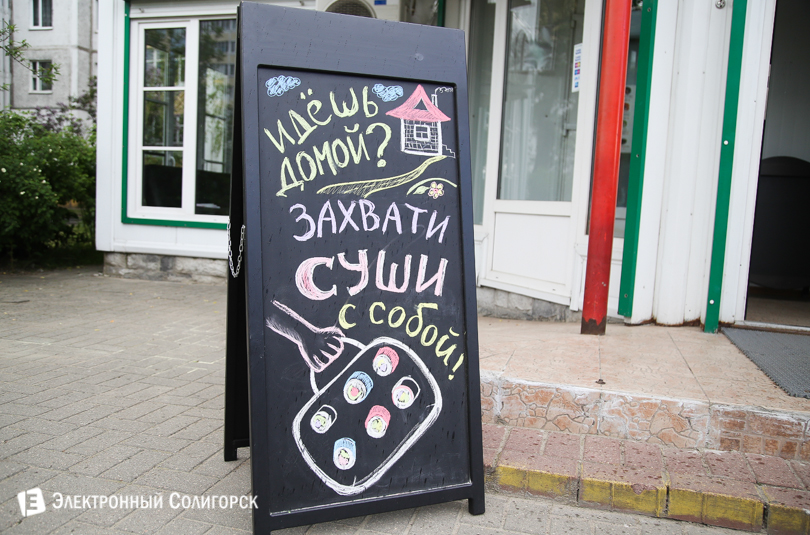 идёшь
домой?
Захвати
суши
с собой!
Электронный Солигорск